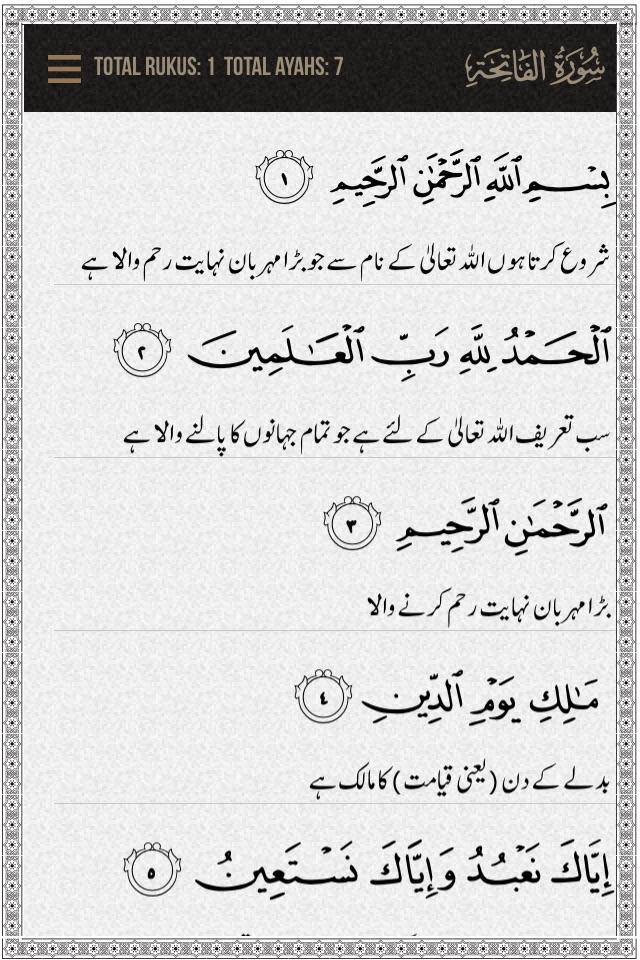 TOTAL RUKUS: 1 TOTAL AYAHS: 7 سُورَةُ الفَاتِحَةِ
بِسْمِ ٱللَّهِ ٱلرَّحْمَٰنِ ٱلرَّحِيمِ ١
شروع کرتا ہوں اللہ تعالیٰ کے نام سے جو بڑا مہربان نہایت رحم والا ہے
ٱلْحَمْدُ لِلَّهِ رَبِّ ٱلْعَـٰلَمِينَ ٢
سب تعریف اللہ تعالیٰ کے لئے ہے جو تمام جہانوں کا پالنے والا ہے
ٱلرَّحْمَٰنِ ٱلرَّحِيمِ ٣
بڑا مہربان نہایت رحم کرنے والا
مَـٰلِكِ يَوْمِ ٱلدِّينِ ٤
بدلے کے دن (یعنی قیامت) کا مالک ہے
إِيَّاكَ نَعْبُدُ وَإِيَّاكَ نَسْتَعِينُ ٥